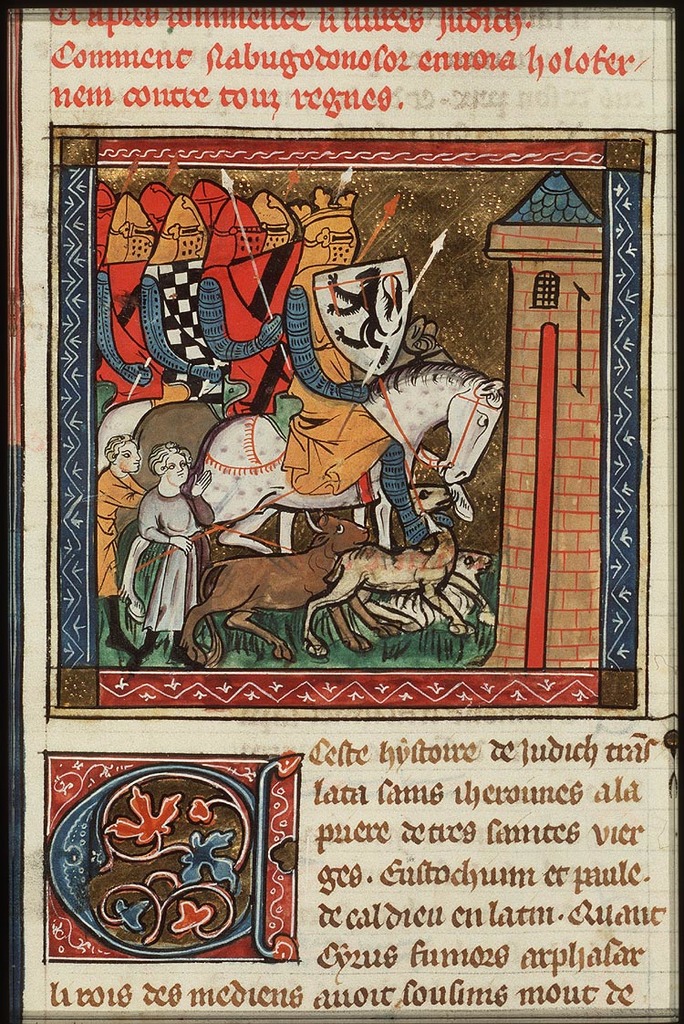 Et apres commence li liures Judich.
Comment Nabugodonosor enuoia holofer/
nem contre touz regnes.
Ceste hystoire de Judich trās
lata sains iherounes a la
priere de tres saintes vier
ges. Eustochium et paule.
de caldieu en latin. Quant
Cyrus fumors arphasar
li rois des mediens auoit sousmis mout de